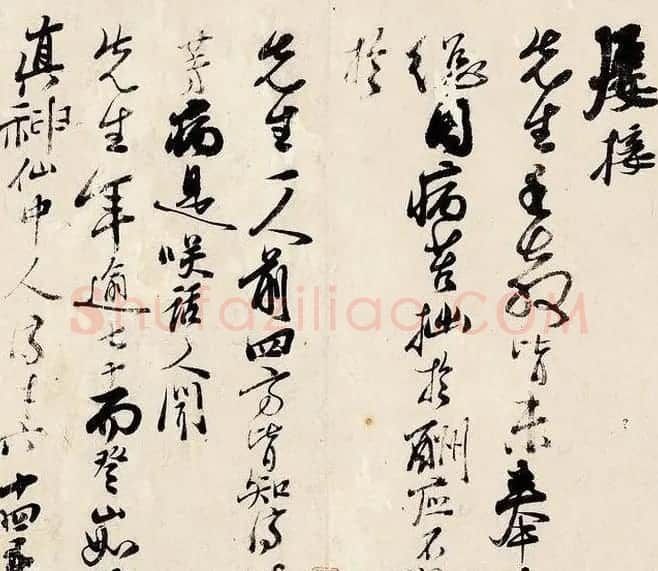 屡接
先生手教皆未奉
復因病苦拙於酬应不
於
先生一人前四方皆知
等病是咲話人間
先生年逾七十而登山如
真神仙中人十六十四五
shufaziliao.COM